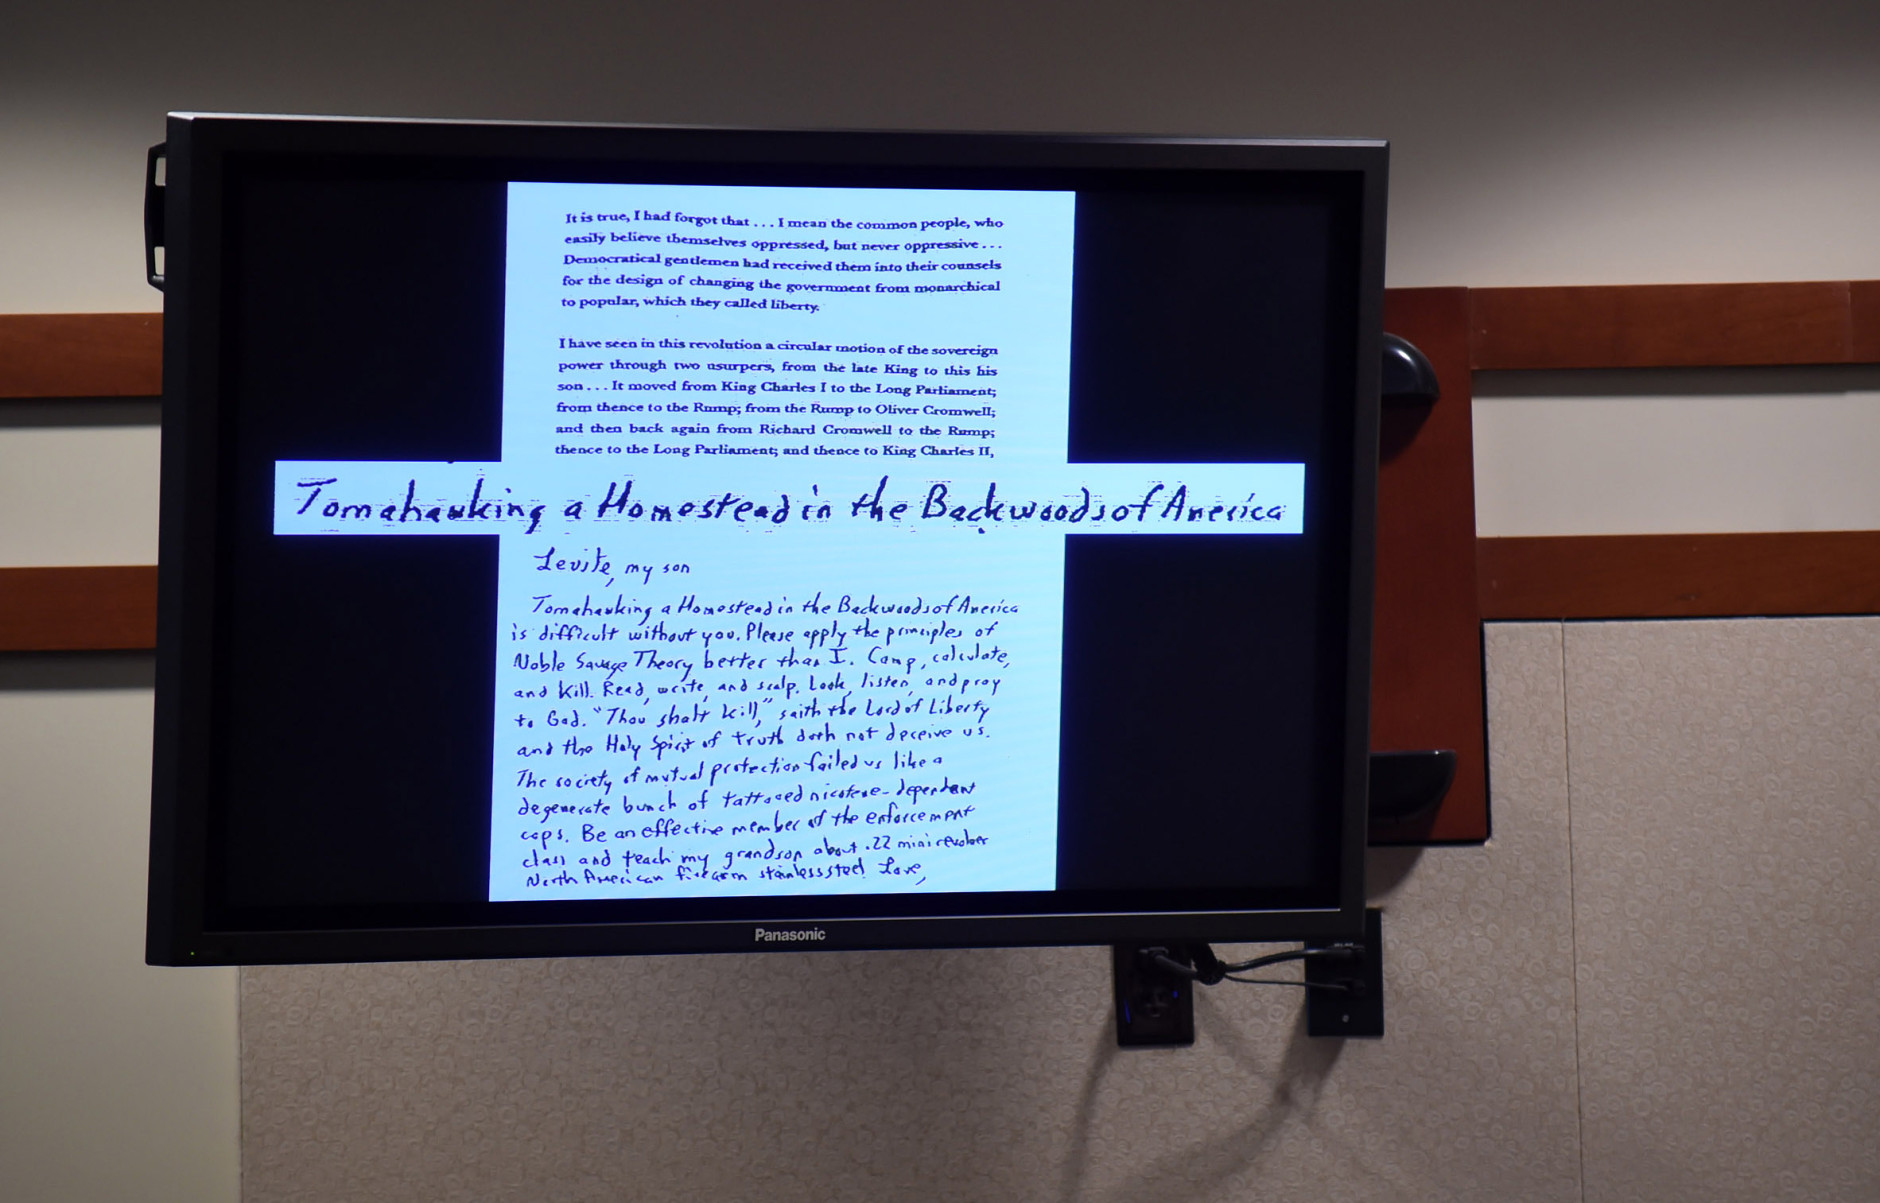 It is true, I had forgot that . . . I mean the common people, who
easily believe themselves oppressed, but never oppressive . . .
Democratical gentlemen had received them into their counsels
for the design of changing the government from monarchical
to popular, which they called liberty.
I have seen in this revolution a circular motion of the sovereign
power through two usurpers, from the late King to this his
son . . . It moved from King Charles I to the Long Parliament;
from thence to the Rump; from the Rump to Oliver Cromwell;
and then back again from Richard Cromwell to the Rump;
thence to the Long Parliament; and thence to King Charles II,
Tomahawking a Homestead in the Backwoods of America
Levite, my son
Tomahawking a Homestead in the Backwoods of America
is difficult without you. Please apply the principles of
Noble Savage Theory better than I. Camp, calculate,
and kill. Read, write, and scalp. Look, listen, and pray
to God. "Thou shalt kill," saith the Lord of Liberty
and the Holy Spirit of truth doth not deceive us.
The society of mutual protection failed us like a
degenerate bunch of tattooed nicotene-dependent
cops. Be an effective member of the enforcement
class and teach my grandson about .22 mini revolver
North American firearm stainless steel. Love,
Panasonic